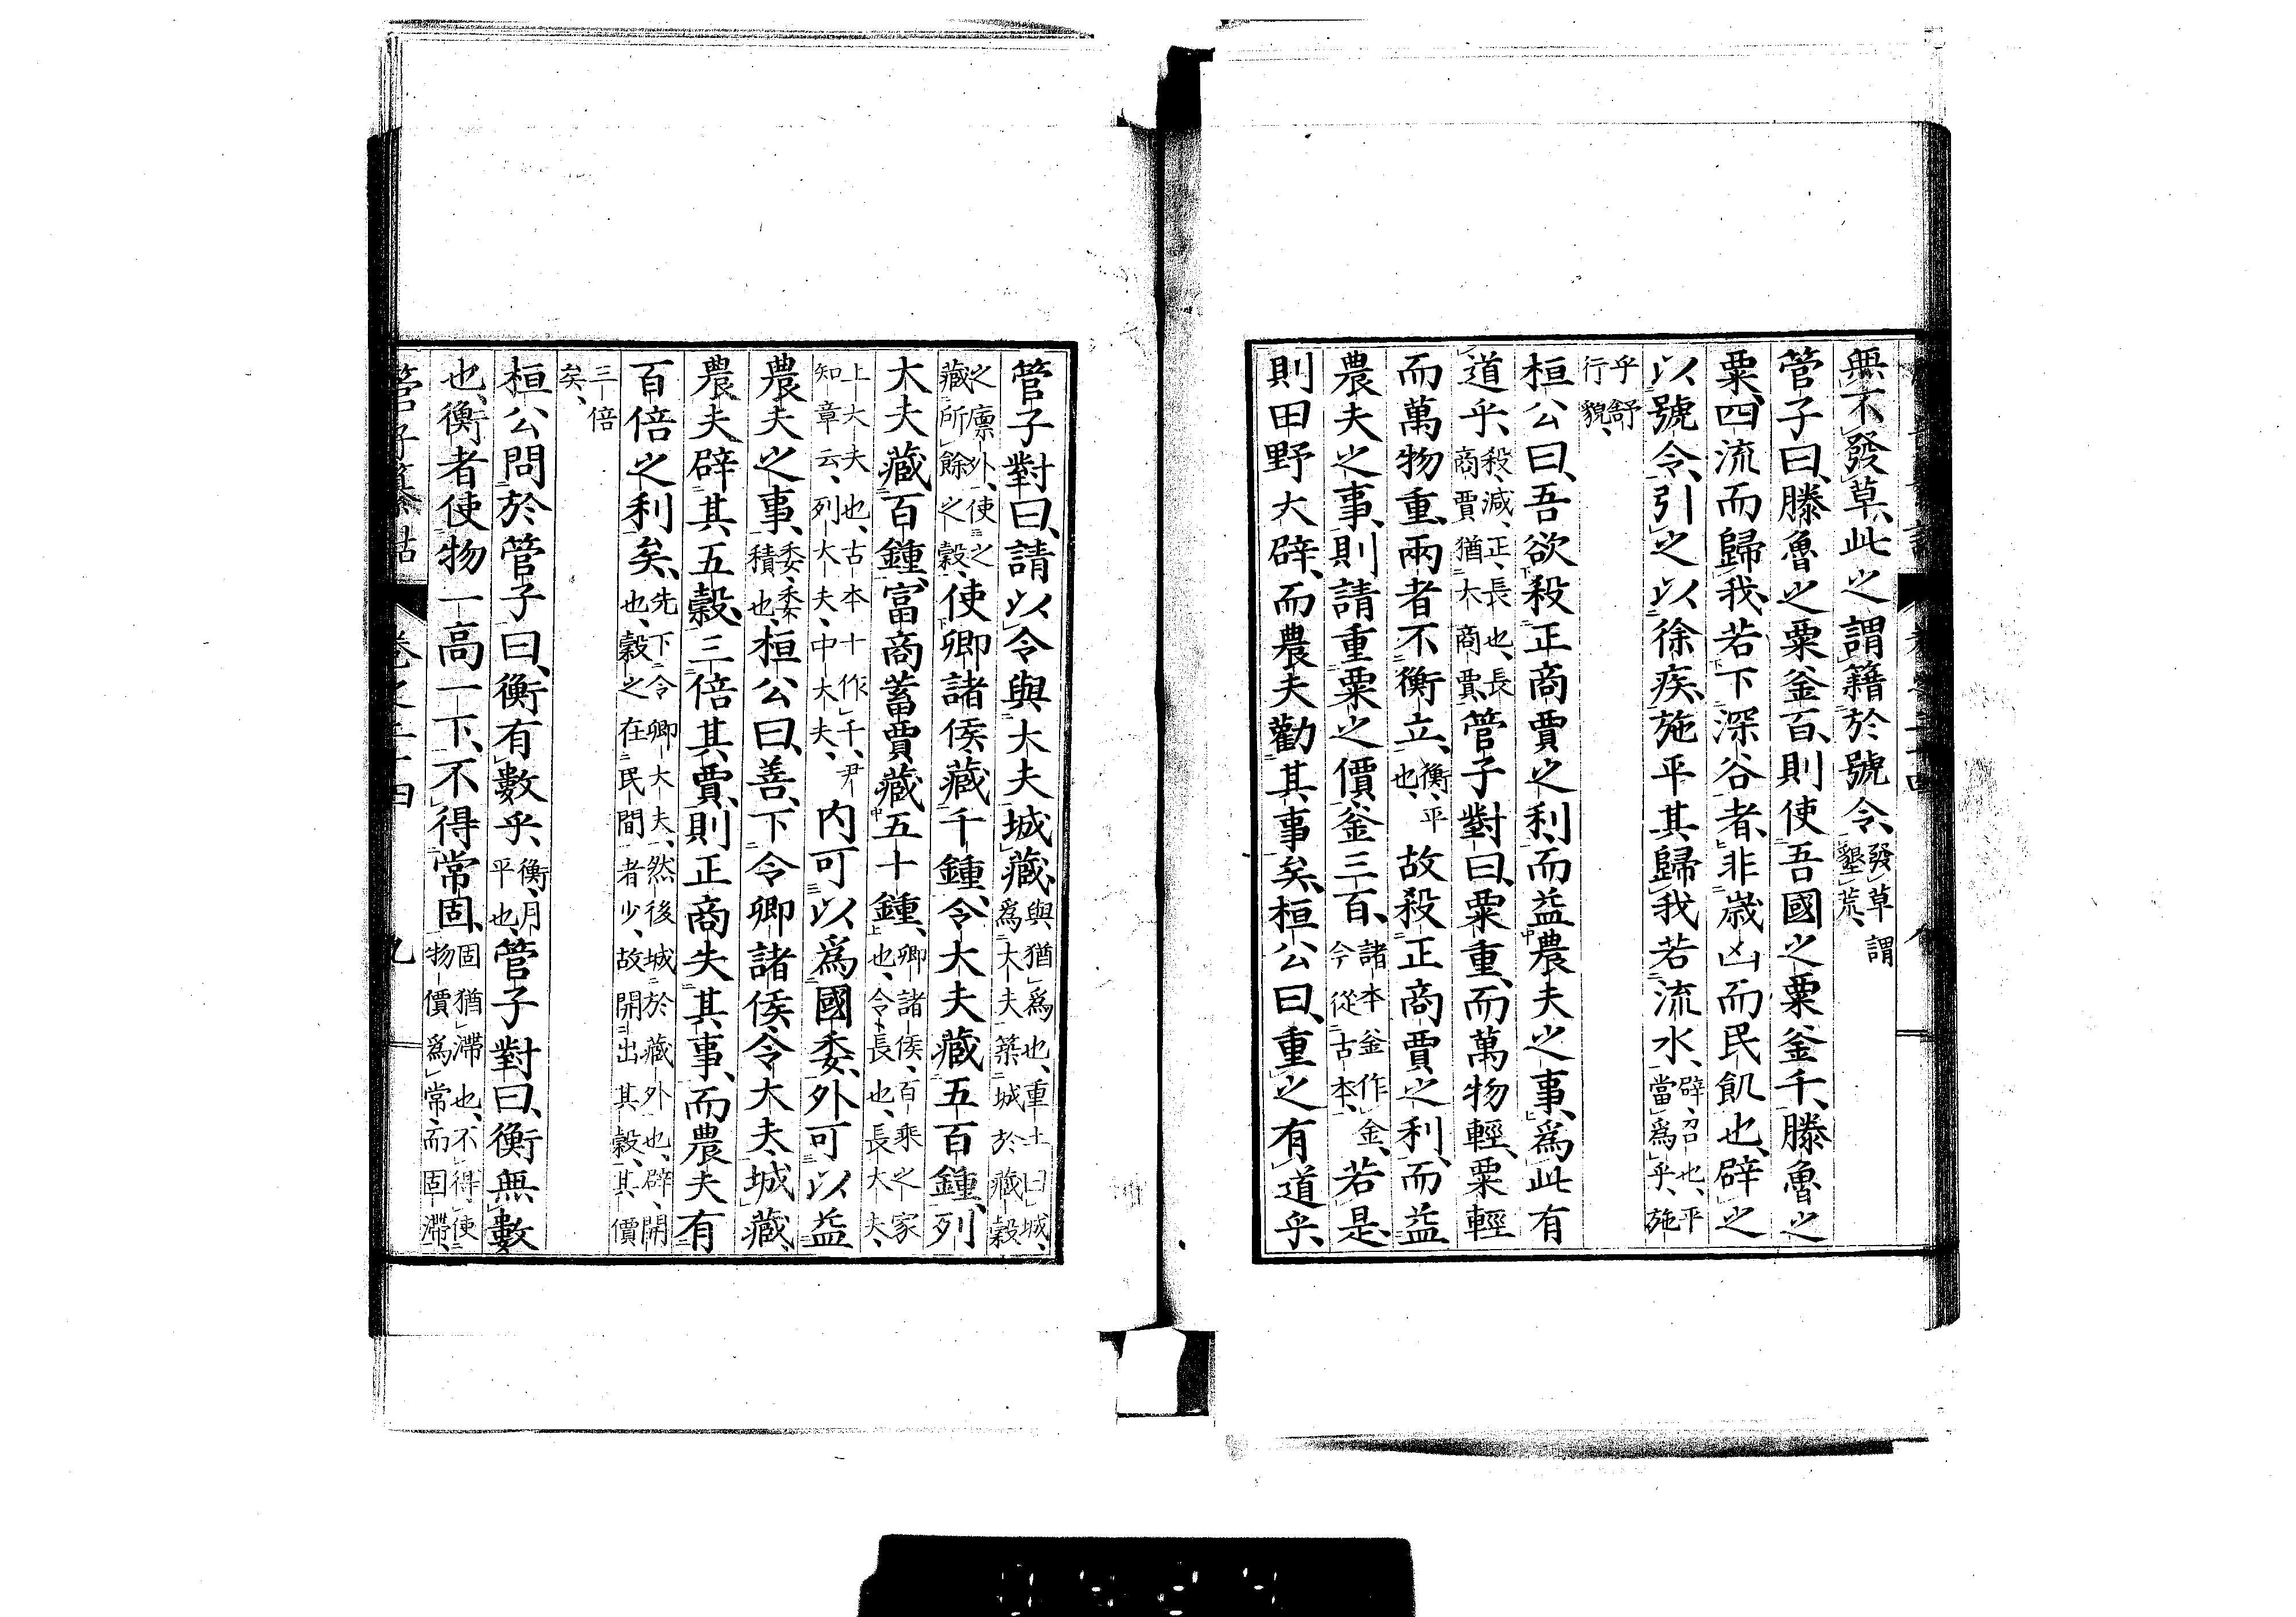 無不發草、此之謂籍於號令、發草謂墾荒、
管子曰、滕魯之粟釜百、則使吾國之粟釜千、滕魯之
粟、四流而歸我、若下深谷者、非歲凶而民飢也、辟之
以號令、引之以徐疾、施平其歸我若流水、辟、召也、平當爲乎、施
乎舒行貌、
桓公曰、吾欲殺正商賈之利、而益農夫之事、爲此有
道乎、殺、減、正、長也、長商賈猶大商賈、管子對曰、粟重、而萬物輕、粟輕
而萬物重、兩者不衡立、衡、平也、故殺正商賈之利、而益
農夫之事、則請重粟之價釜三百、諸本釜作金、今從古本、若是、
則田野大辟、而農夫勸其事矣、桓公曰、重之有道乎、
管子對曰、請以令與大夫城藏、與猶爲也、重土曰城、爲大夫築城於藏穀
之廩外、使之藏所餘之穀、使卿諸侯藏千鍾、令大夫藏五百鍾、列
大夫藏百鍾、富商蓄賈藏五十鍾、卿諸侯、百乘之家也、令長也、長大夫、
上大夫也、古本十作千、尹知章云、列大夫、中大夫、內可以爲國委、外可以益
農夫之事、委、委積也、桓公曰、善、下令卿諸侯、令大夫、城藏、
農夫辟其五穀、三倍其賈、則正商失其事、而農夫有
百倍之利矣、先下令卿大夫、然後城於藏外也、辟、開也、穀之在民間者少、故開出其穀、其價
三倍矣、
桓公問於管子曰、衡有數乎、衡、月平也、管子對曰、衡無數
也、衡者使物一高一下、不得常固、固猶滯也、不得使物價爲常、而固滯、
管子纂詁 卷之二十四 九